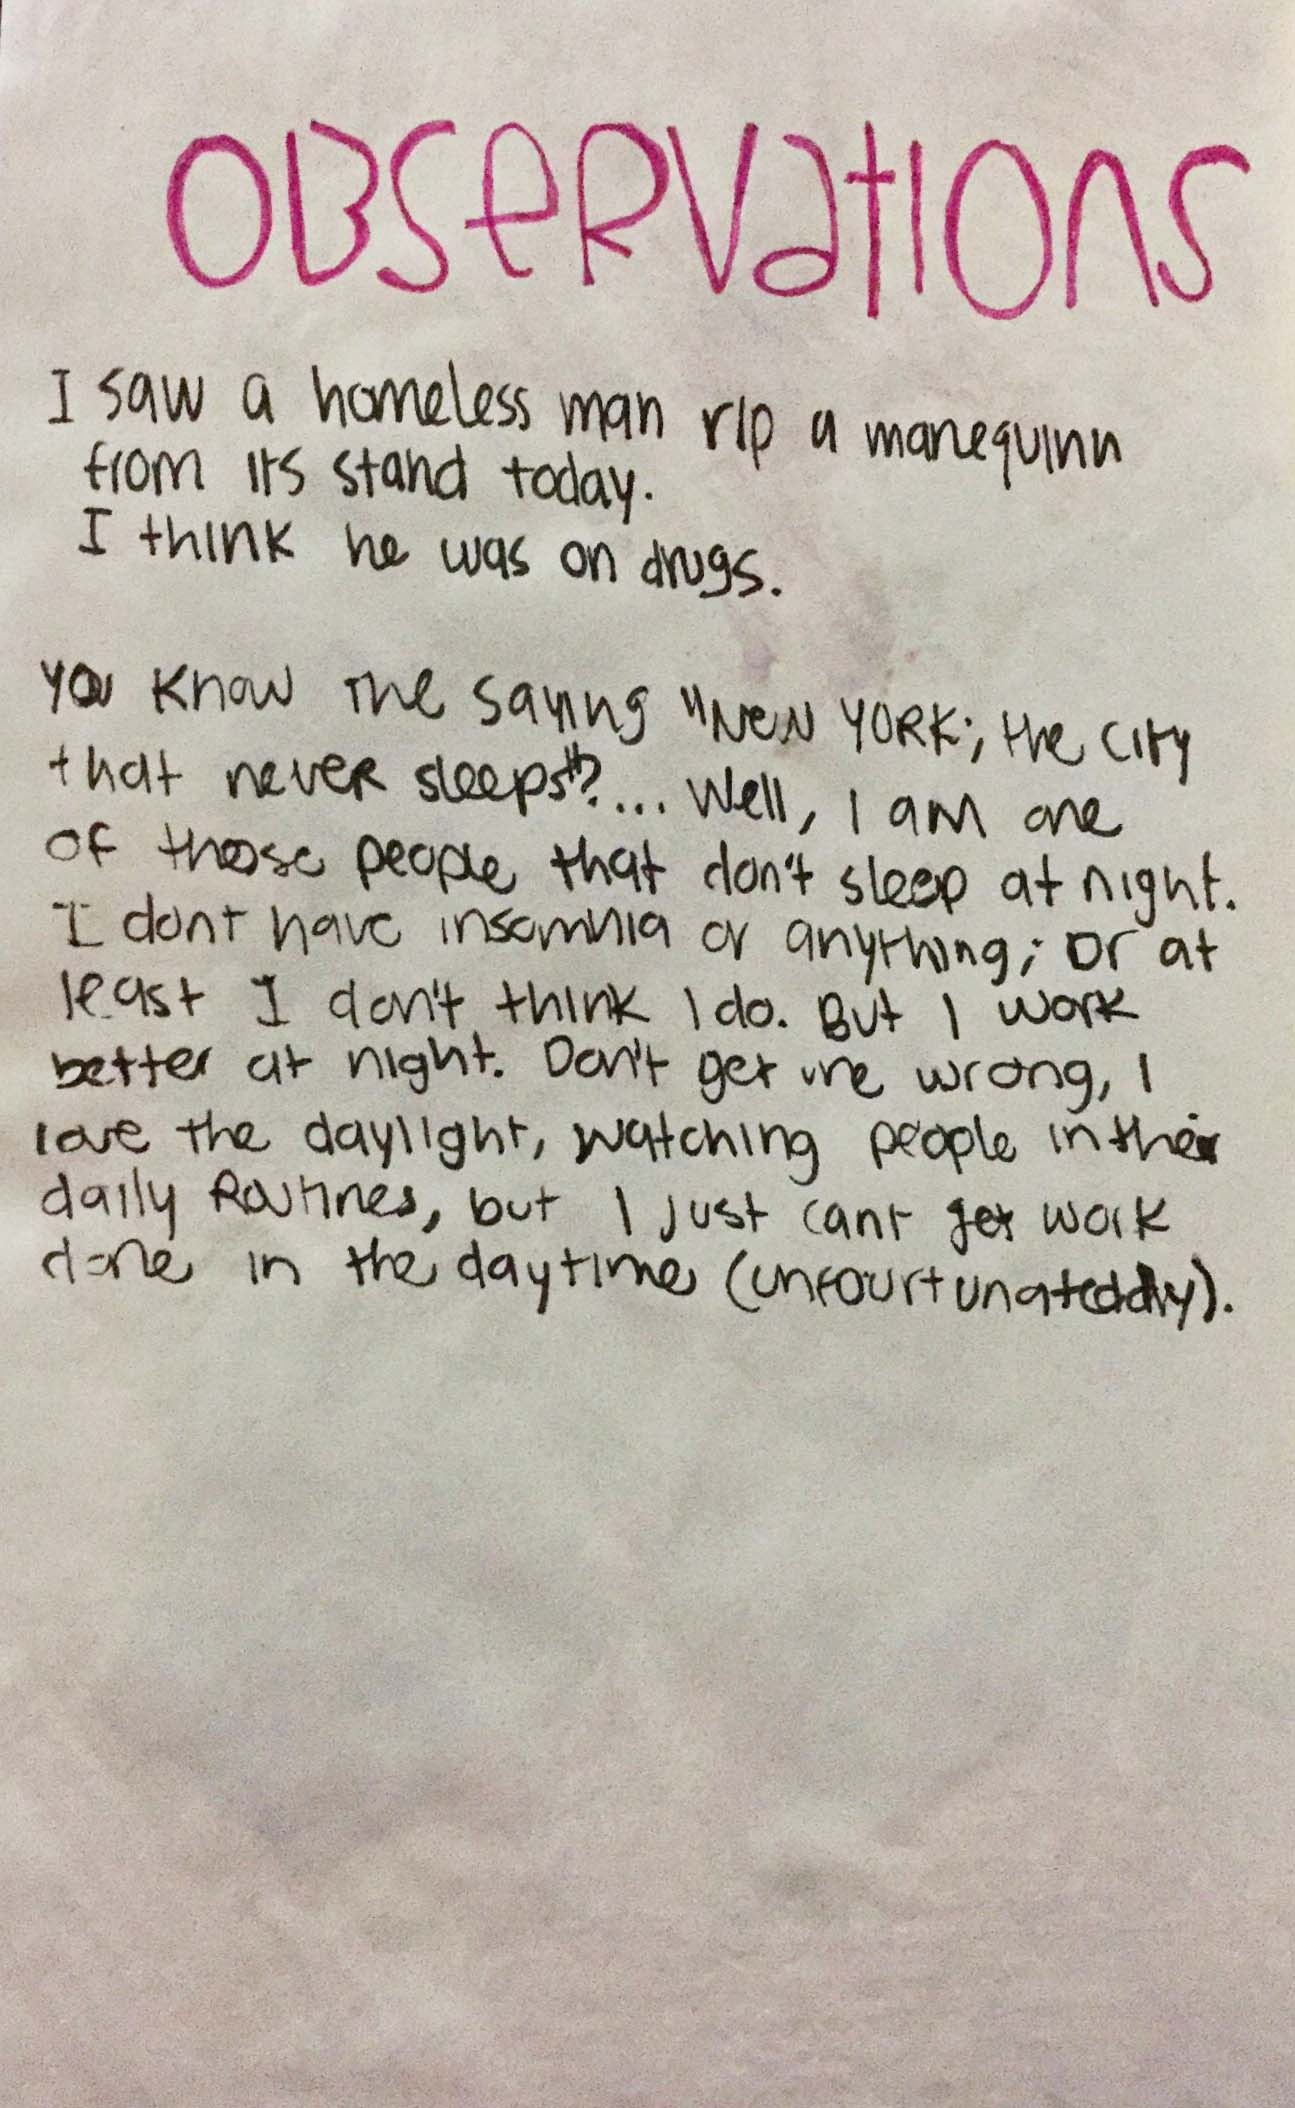 OBSeRVatIOnS
I saw a homeless man rip a manequinn
from its stand today.
I think he was on drugs.
You know the saying "New YORK; the city
that never sleeps"?... Well, I am one
of those people that don't sleep at night.
I dont have insomnia or anything; or at
least I don't think I do. But I work
better at night. Don't get me wrong, I
love the daylight, watching people in their
daily Routines, but I just cant get work
done in the daytime (unfourtunatedly).